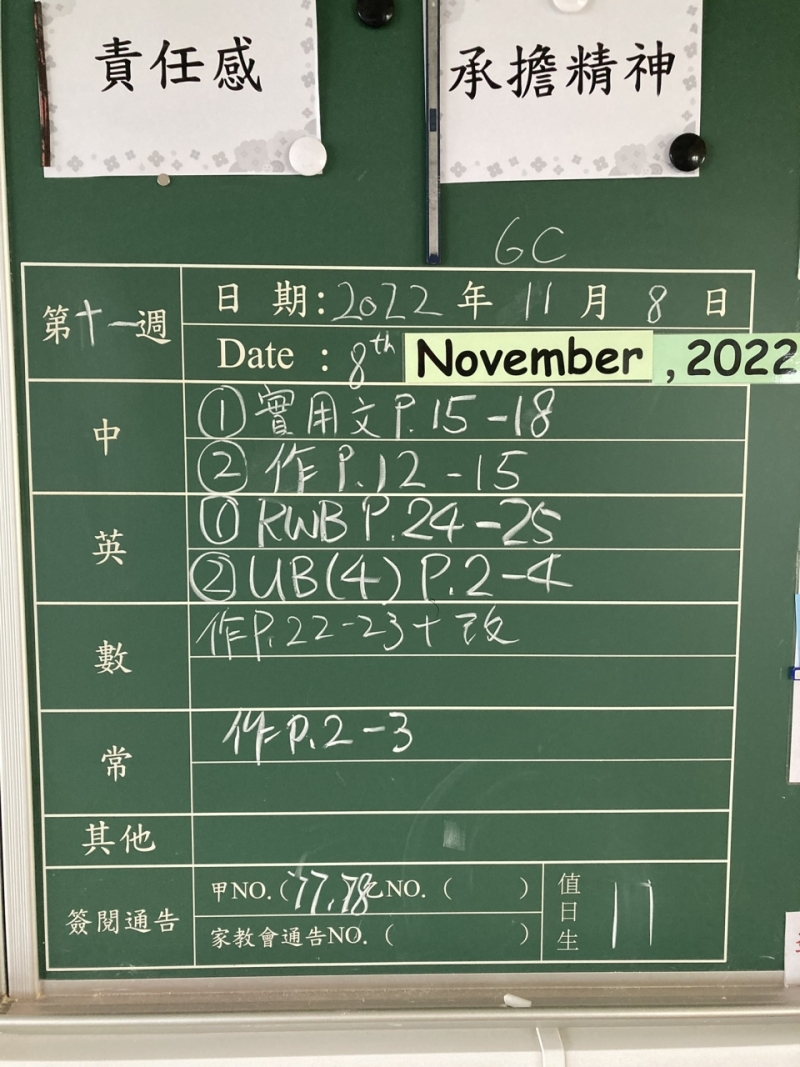 責任感
承擔精神
6C
第十一週
日 期:2022 年 11 月 8 日
Date : 8th November, 2022
中
① 實用文 P.15-18
② 作 P.12-15
英
① RWB P.24-25
② UB(4) P.2-4
數
作P.22-23+改
常
作P.2-3
其他
簽閱通告
甲NO.(77,78乙NO. ( )
家教會通告NO. ( )
值日生
11